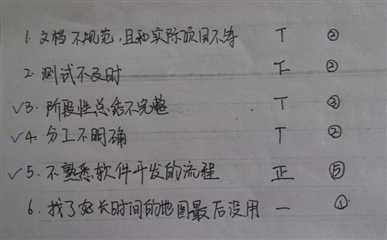 1. 文档不规范,且和实际项目不符 T ②
2. 测试不及时 T ②
✓3. 阶段性总结不完整 T ②
✓4. 分工不明确 T ②
✓5. 不熟悉软件开发的流程 正 ⑤
6. 找了好长时间的地图最后没用 一 ①